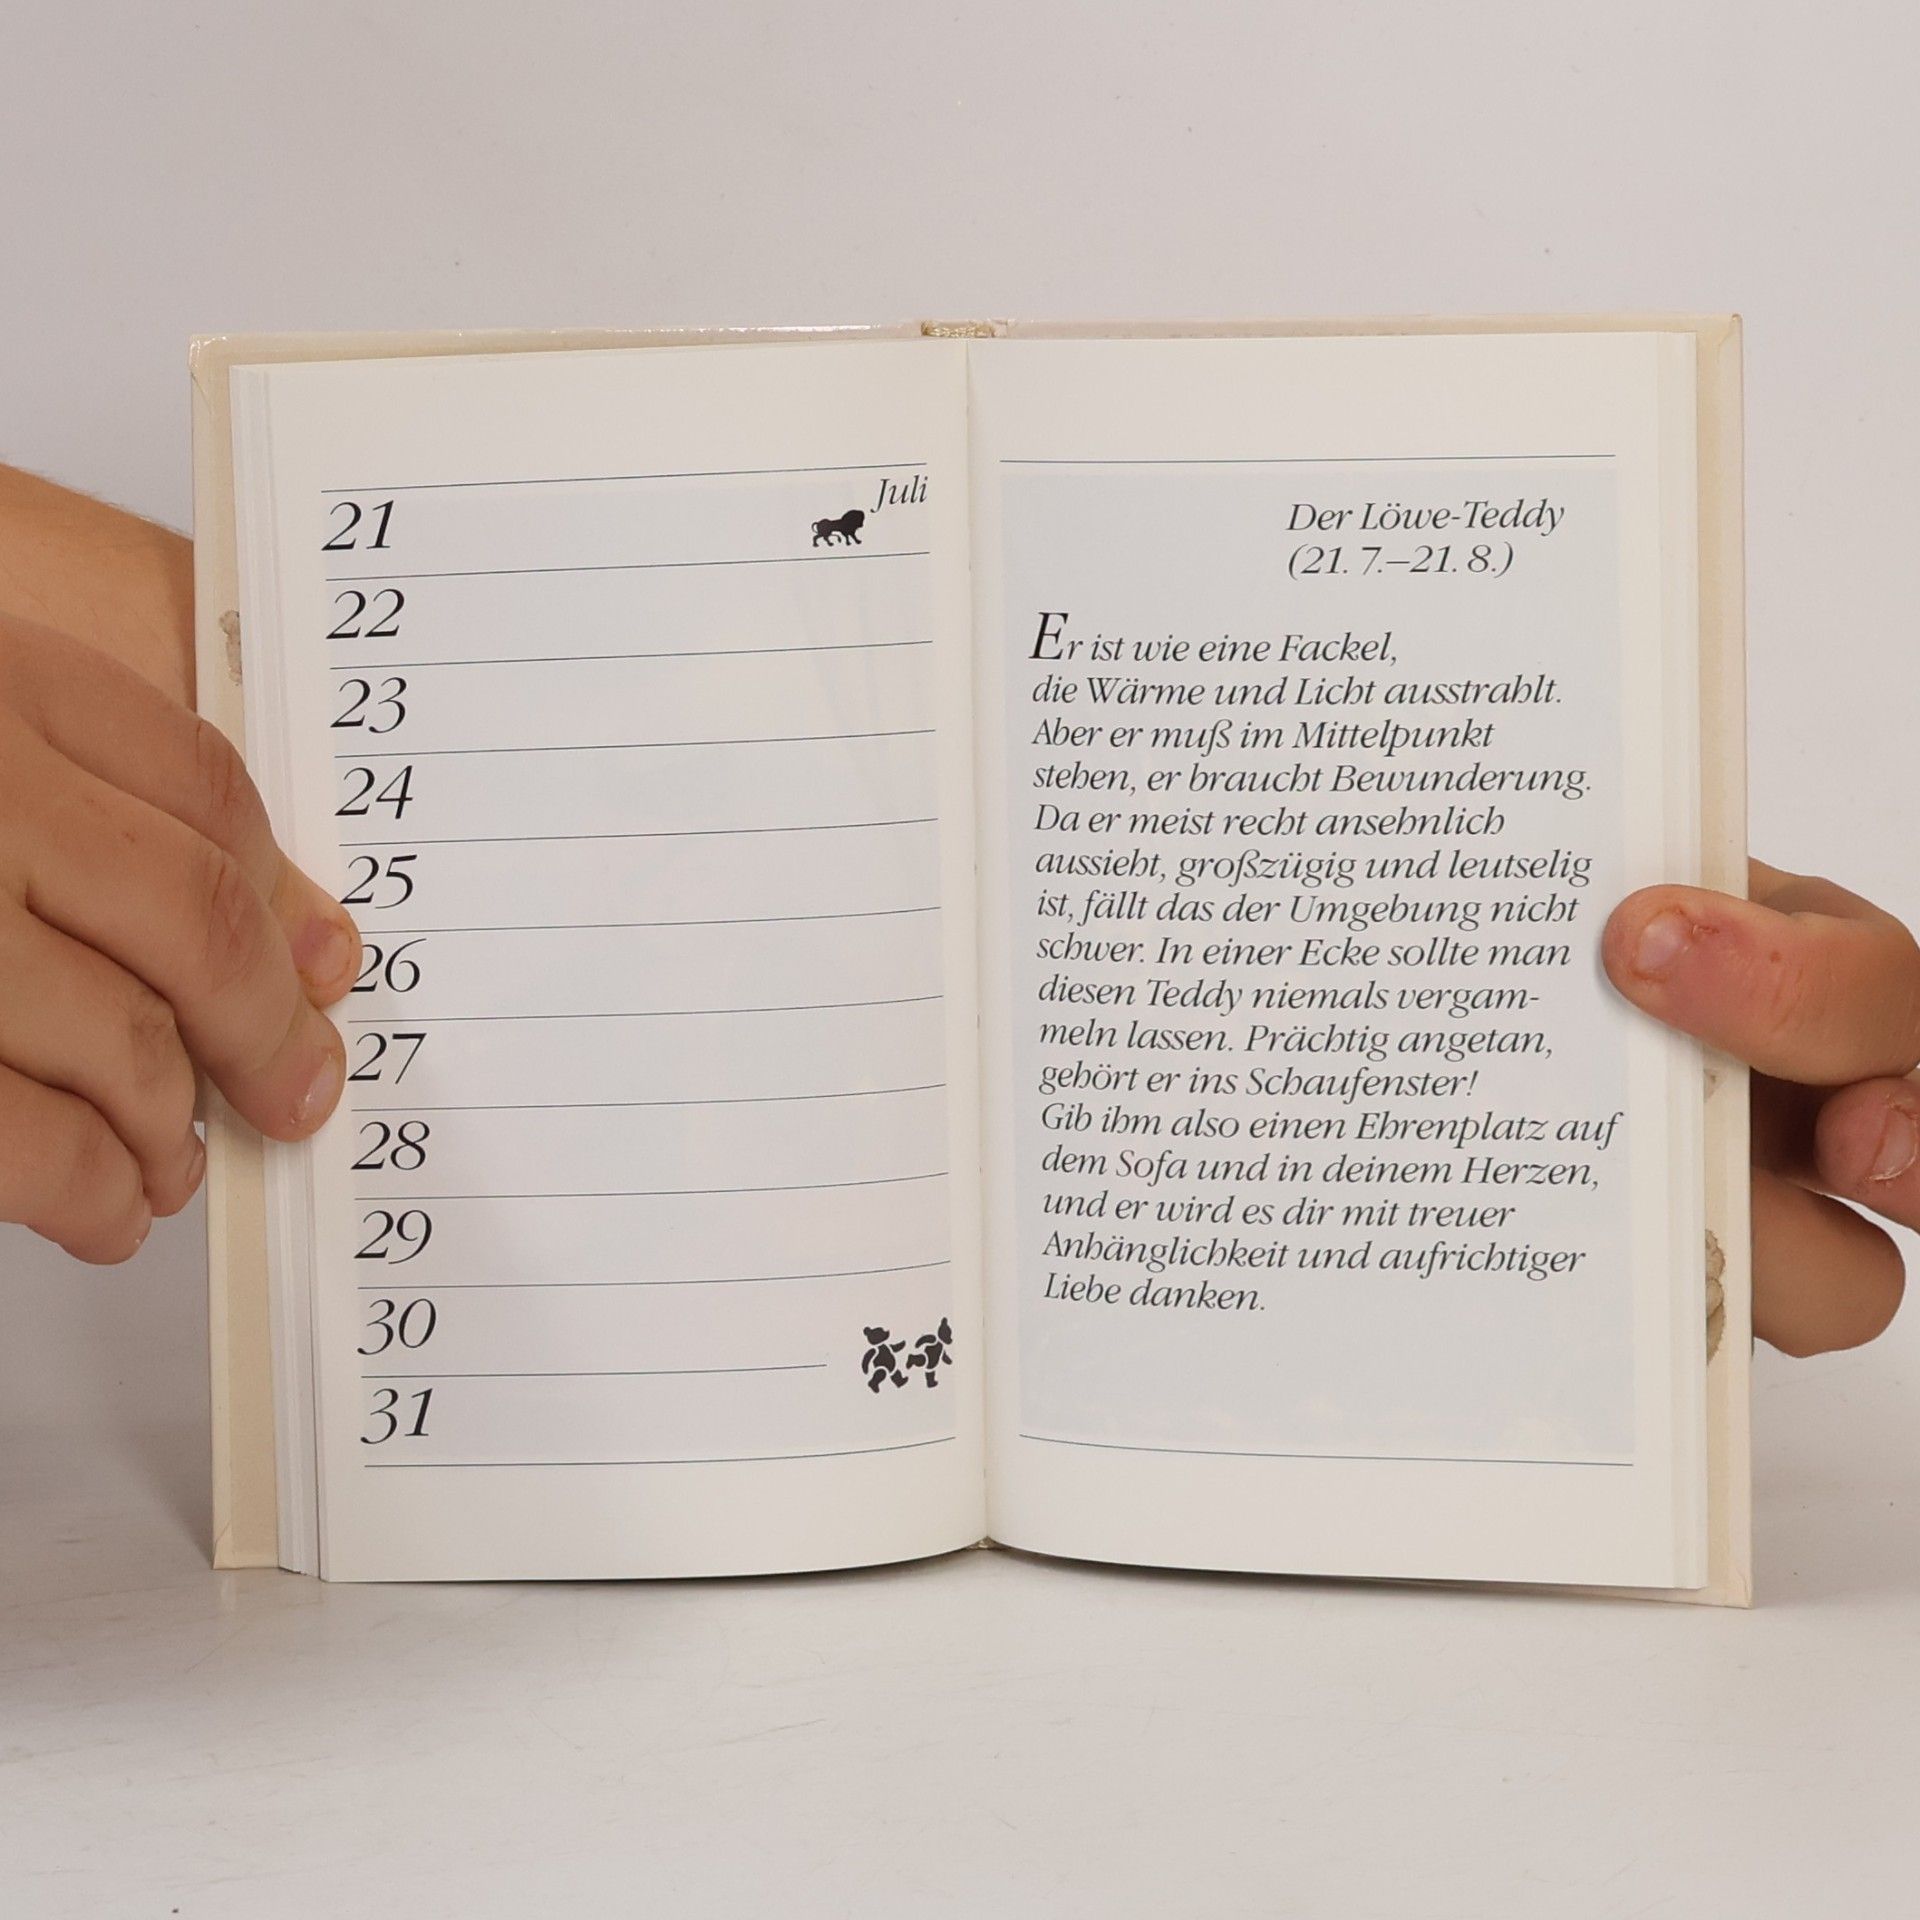 Juli
21
22
23
24
25
26
27
28
29
30
31
Der Löwe-Teddy
(21. 7.–21. 8.)
Er ist wie eine Fackel,
die Wärme und Licht ausstrahlt.
Aber er muß im Mittelpunkt
stehen, er braucht Bewunderung.
Da er meist recht ansehnlich
aussieht, großzügig und leutselig
ist, fällt das der Umgebung nicht
schwer. In einer Ecke sollte man
diesen Teddy niemals vergam-
meln lassen. Prächtig angetan,
gehört er ins Schaufenster!
Gib ihm also einen Ehrenplatz auf
dem Sofa und in deinem Herzen,
und er wird es dir mit treuer
Anhänglichkeit und aufrichtiger
Liebe danken.